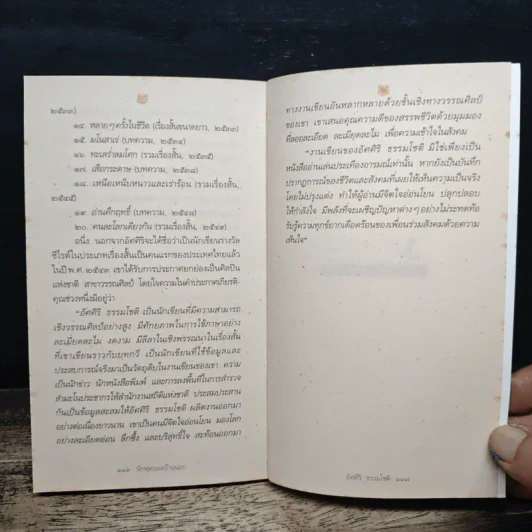 ๒๕๓๓)
๑๔. หลายๆ ครั้งในชีวิต (เรื่องสั้นขนาดยาว, ๒๕๓๓)
๑๕. มโนสาร (บทความ, ๒๕๓๔)
๑๖. ทะเลร่ำลมโศก (รวมเรื่องสั้น, ๒๕๓๕)
๑๗. เสือกระดาษ (บทความ, ๒๕๓๘)
๑๘. เหนือเหน็บหนาวและเร่าร้อน (รวมเรื่องสั้น,
๒๕๔๕)
๑๙. อ่านคึกฤทธิ์ (บทความ, ๒๕๔๘)
๒๐. คนละโลกเดียวกัน (รวมเรื่องสั้น, ๒๕๔๙)
อนึ่ง นอกจากอัศศิริจะได้ชื่อว่าเป็นนักเขียนรางวัล
ซีไรต์ในประเภทเรื่องสั้นเป็นคนแรกของประเทศไทยแล้ว
ในปี พ.ศ. ๒๕๔๓ เขาได้รับการประกาศยกย่องเป็นศิลปิน
แห่งชาติ สาขาวรรณศิลป์ โดยใจความในคำประกาศเกียรติ-
คุณช่วงหนึ่งมีอยู่ว่า
"อัศศิริ ธรรมโชติ เป็นนักเขียนที่มีความสามารถ
เชิงวรรณศิลป์อย่างสูง มีศักยภาพในการใช้ภาษาอย่าง
ละเมียดละไม งดงาม มีลีลาในเชิงพรรณนาในเรื่องสั้น
ที่เขาเขียนราวกับบทกวี เป็นนักเขียนที่ใช้ข้อมูลและ
ประสบการณ์จริงมาเป็นวัตถุดิบในงานเขียนของเขา ความ
เป็นนักข่าว นักหนังสือพิมพ์ และการลงพื้นที่ในการสำรวจ
สำมะโนประชากรให้สำนักงานสถิติแห่งชาติ ประสมประสาน
กันเป็นข้อมูลสะสมให้อัศศิริ ธรรมโชติ ผลิตงานออกมา
อย่างต่อเนื่องยาวนาน เขาเป็นคนมีจิตใจอ่อนโยน มองโลก
อย่างละเอียดอ่อน ลึกซึ้ง และบริสุทธิ์ใจ สะท้อนออกมา
ทางงานเขียนอันหลากหลายด้วยชั้นเชิงทางวรรณศิลป์
ของเขา เขาเสนอคุณความดีของสรรพชีวิตด้วยมุมมอง
ที่ลออละเอียด ละเมียดละไม เพื่อความเข้าใจในสังคม
"งานเขียนของอัศศิริ ธรรมโชติ มิใช่เพียงเป็น
หนังสืออ่านเล่นประเทืองอารมณ์เท่านั้น หากยังเป็นบันทึก
ปรากฏการณ์ของชีวิตและสังคมที่เผยให้เห็นความเป็นจริง
โดยไม่ปรุงแต่ง ทำให้ผู้อ่านมีจิตใจอ่อนโยน ปลุกปลอบ
ให้กำลังใจ มีพลังที่จะเผชิญปัญหาต่างๆ อย่างไม่ระทดท้อ
รับรู้ความทุกข์ยากเดือดร้อนของเพื่อนร่วมสังคมด้วยความ
เห็นใจ"
อัศศิริ ธรรมโชติ ๑๑๗